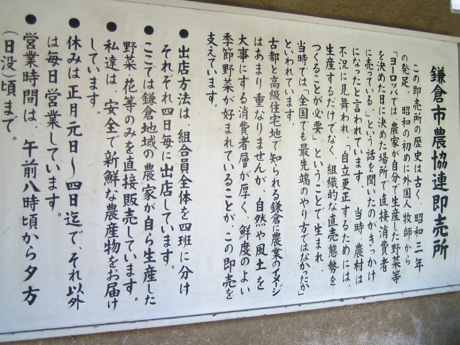 鎌倉市農協連即売所
この即売所の歴史は古く、昭和三年
の発足。昭和の初めに外国人牧師から
「ヨーロッパでは農家が自分で生産した野菜等
を決めた日に決めた場所で直接消費者
に売っている」という話を聞いたのがきっかけ
になったと言われています。当時、農村は
不況に見舞われ、「自立更正するためには、
生産するだけでなく、組織的な直売態勢を
つくることが必要」ということで生まれ
当時では、「全国でも最先端のやり方ではなかったか」
といわれています。
古都と高級住宅地で知られる鎌倉に農業のイメージ
はあまり重なりませんが、自然や風土を
大事にする消費者層が厚く、鮮度のよい
季節野菜が好まれていることが、この即売を
支えています。
●出店方法は、組合員全体を四班に分け
それぞれ四日毎に出店しています。
●ここでは鎌倉地域の農家が自ら生産した
野菜、花等のみを直接販売しています。
●私達は、安全で新鮮な農産物をお届け
しています。
●休みは正月元日〜四日迄で、それ以外
は毎日営業しています。
●営業時間は、午前八時頃から夕方
(日没)頃まで。